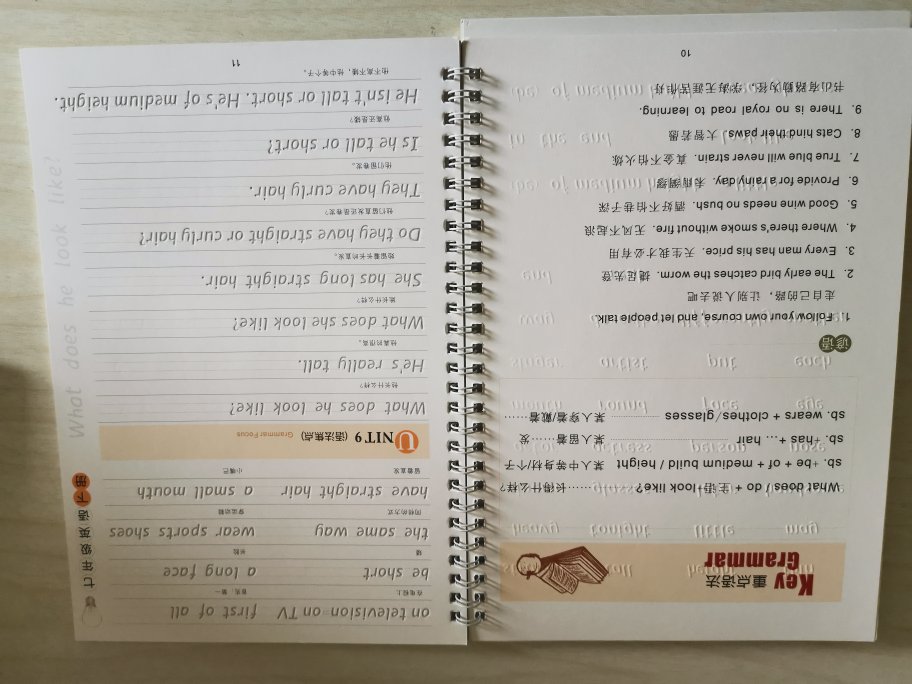 Key Grammar 重点语法
What does / do + 主语 + look like? ……长得什么样?
sb. +be + of + medium build / height 某人中等身材/个子
sb. +has +... hair 某人留着……发
sb. + wears + clothes/glasses 某人穿着/戴着……
谚语
1. Follow your own course, and let people talk.
走自己的路，让别人说去吧
2. The early bird catches the worm. 捷足先登
3. Every man has his price. 天生我才必有用
4. Where there's smoke without fire. 无风不起浪
5. Good wine needs no bush. 酒好不怕巷子深
6. Provide for a rainy day. 未雨绸缪
7. True blue will never strain. 真金不怕火炼
8. Cats hind their paws. 大智若愚
9. There is no royal road to learning.
书山有路勤为径，学海无涯苦作舟
10
七年级英语 下册
What does he look like?
on television on TV first of all
在电视上 首先；第一
be short a long face
矮 长脸
the same way wear sports shoes
同样的方式 穿运动鞋
have straight hair a small mouth
留着直发 小嘴巴
UNIT 9 (语法焦点) Grammar Focus
What does he look like?
他长什么样?
He's really tall.
他真的很高。
What does she look like?
她长什么样?
She has long straight hair.
她留着长长的直发。
Do they have straight or curly hair?
他们留直发还是卷发?
They have curly hair.
他们留卷发。
Is he tall or short?
他高还是矮?
He isn't tall or short. He's of medium height.
他不高不矮，他中等个子。
11